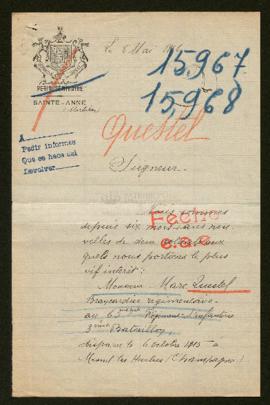 Le 8 Mai 1916
15967
15968
PETIT SÉMINAIRE
SAINTE-ANNE
(Morbihan)
Questel
A
Pedir informes
Que se haga asi
Devolver
Seigneur,
Nous sommes
depuis six mois sans nou-
velles de deux
quels nous portions le plus
vif intérêt :
Fecho
Monsieur Marc Questel
Brancardier régimentaire
au Régiment d'Infanterie
3ème Bataillon
disparu le 6 octobre 1915 à
Mesnil les Hurlus (Champagne)